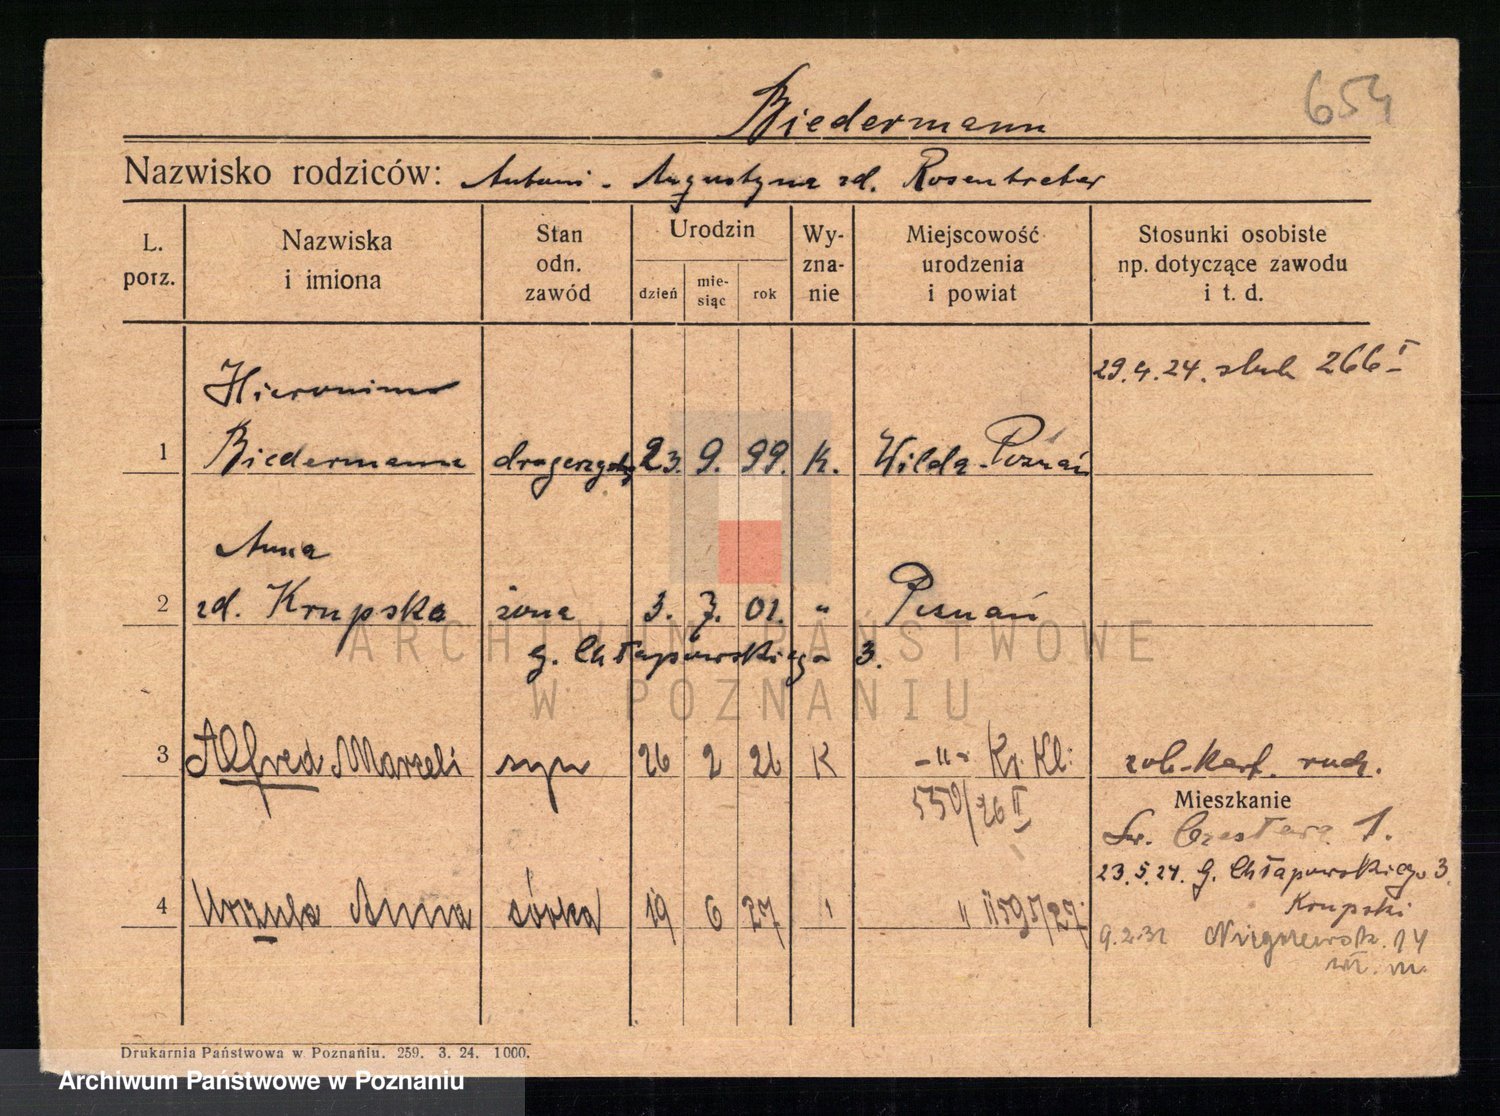 654
Biedermann
Nazwisko rodziców: Antoni - Augustyna zd. Rosentreter
L. porz.
Nazwiska i imiona
Stan odn. zawód
Urodzin
dzień
mie- siąc
rok
Wy- zna- nie
Miejscowość urodzenia i powiat
Stosunki osobiste np. dotyczące zawodu i t. d.
29.4.24. ślub 266 I
Hieronim
1 Biedermann drogerzysta 23. 9. 99. K. Wilda - Poznań
Anna
2 zd. Krupska żona 3. 7. 01. " Poznań
G. Chłapowskiego 3.
3 Alfred Marzeli syn 26 2 26 K -"- Kr. Kl:
550/26 II
rob.
Mieszkanie
Św. Czesława 1.
23.5.24. G. Chłapowskiego 3.
Krupski
4 Urszula Anna córka 19 6 27 " II 595/27.
9.2.31 14
m.
Drukarnia Państwowa w Poznaniu. 259. 3. 24. 1000.
ARCHIWUM PAŃSTWOWE
W POZNANIU
Archiwum Państwowe w Poznaniu